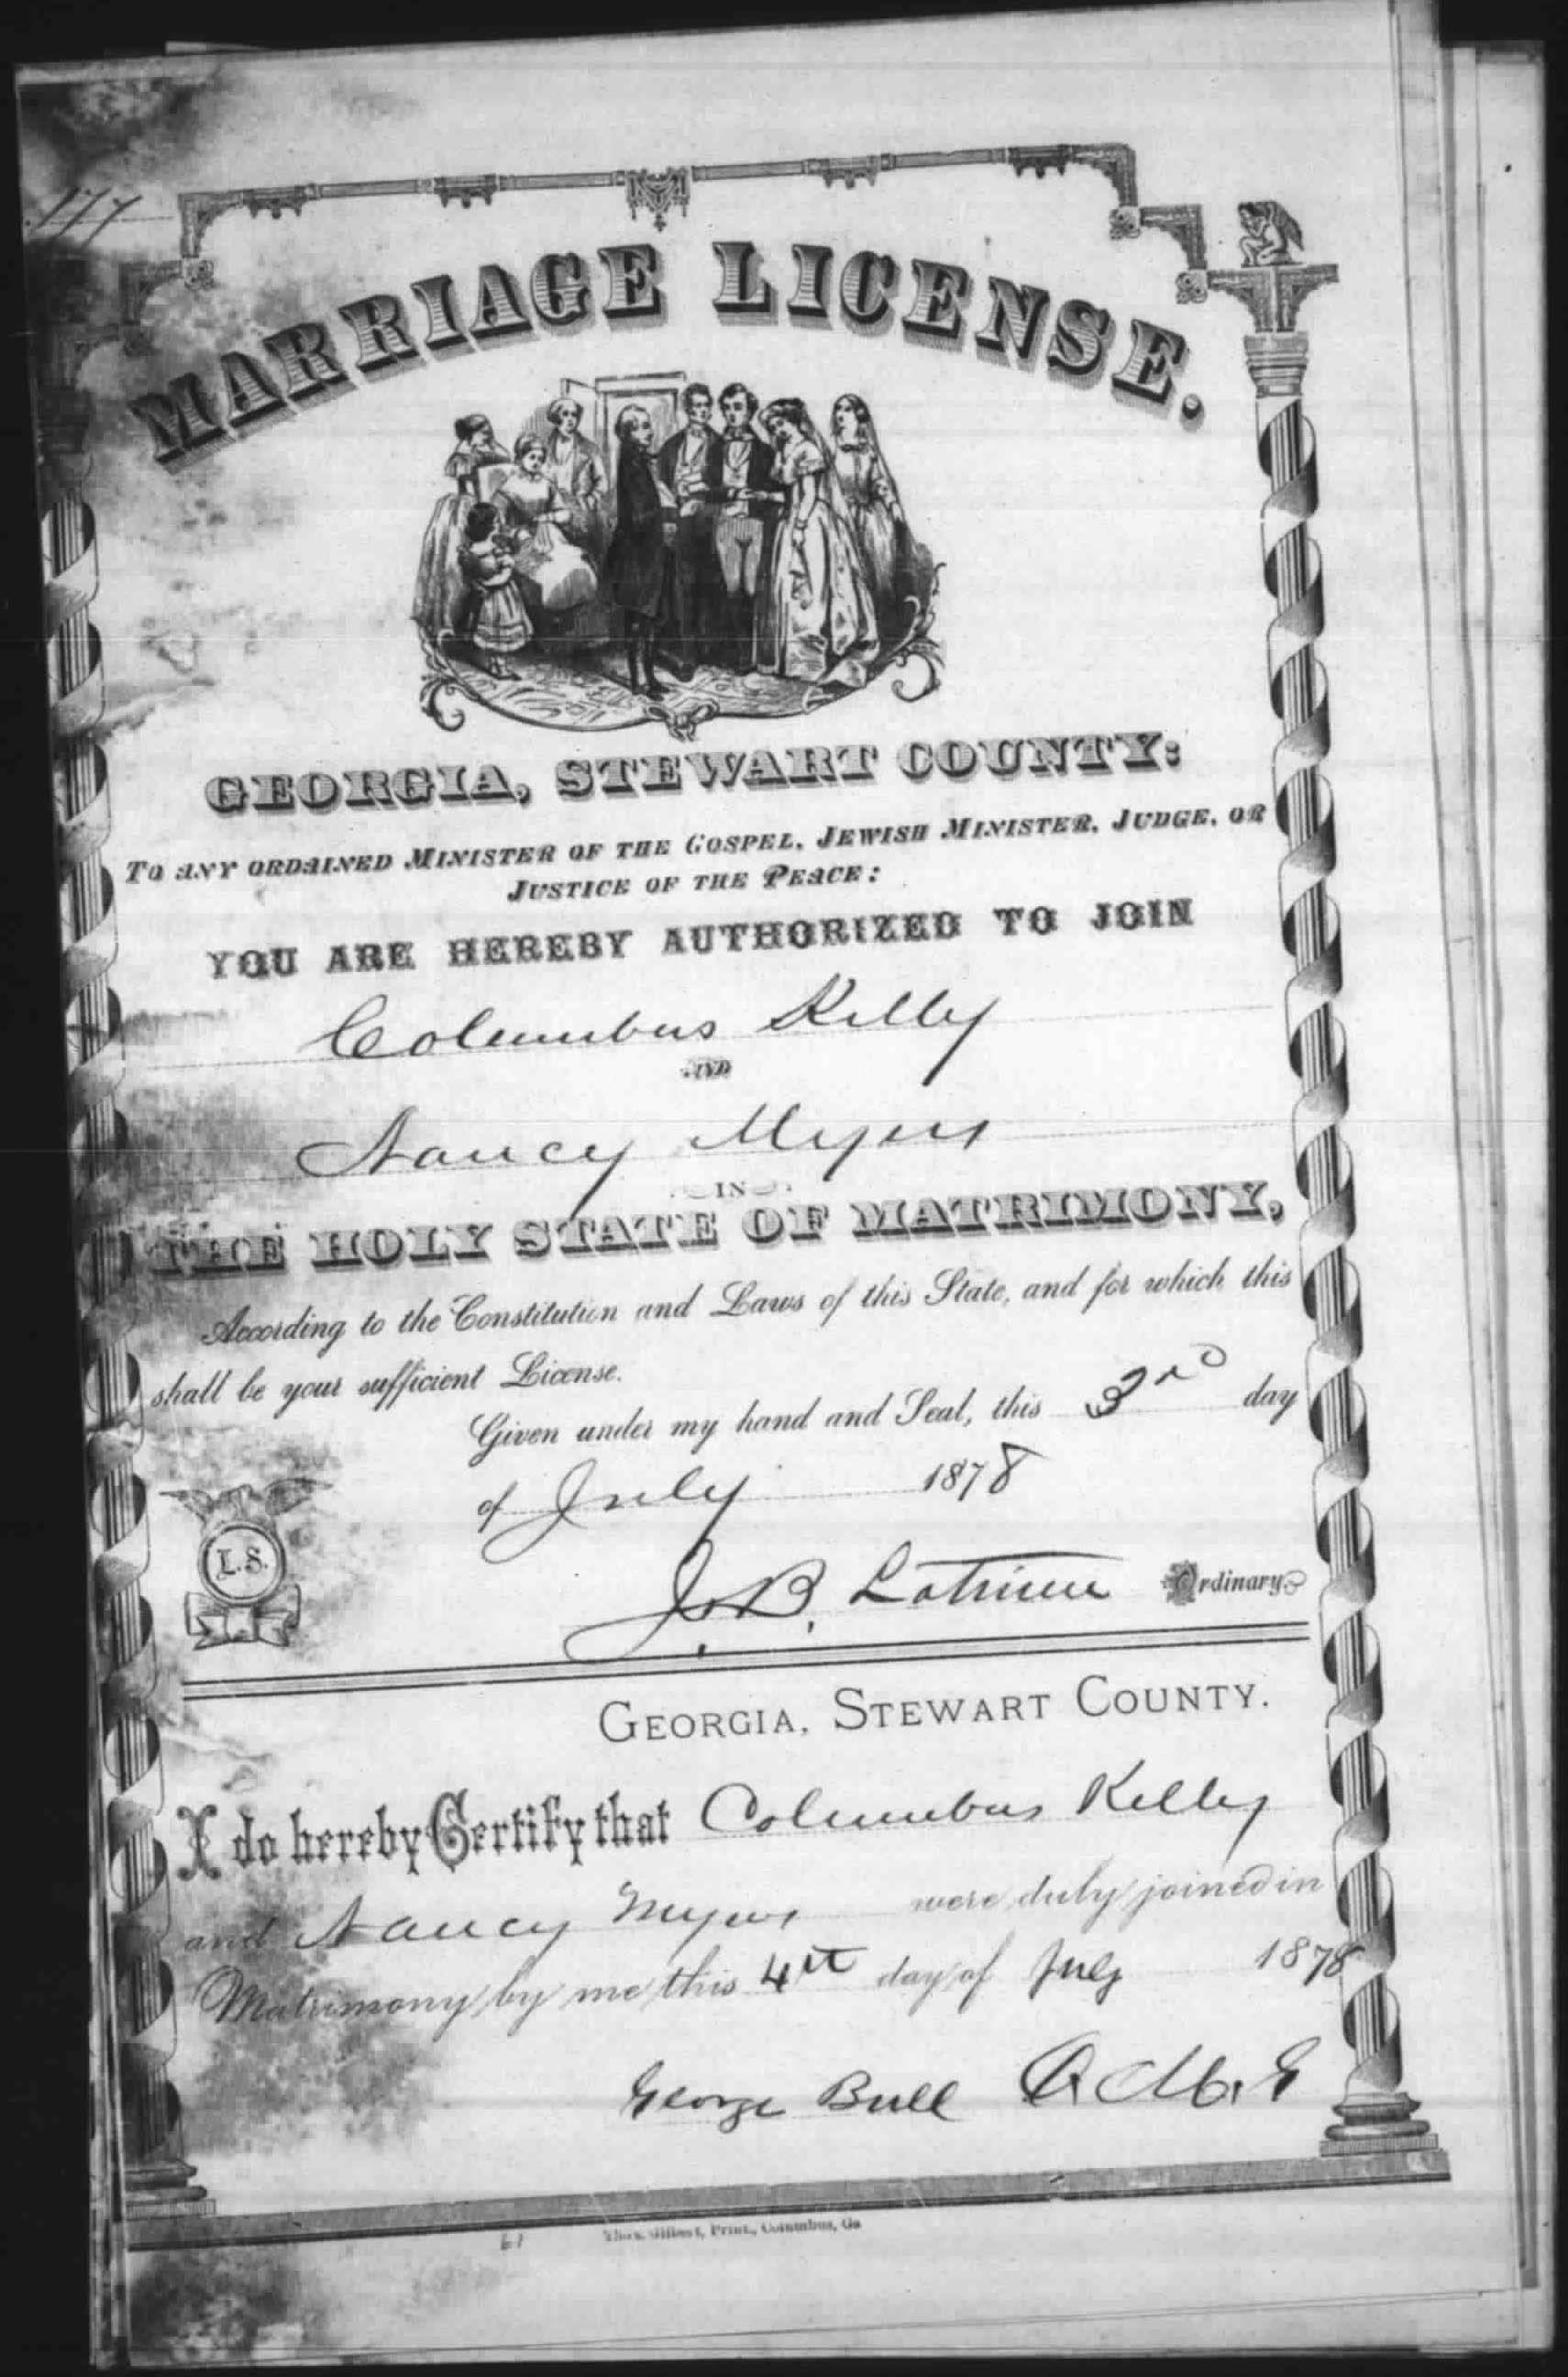 177
MARRIAGE LICENSE.
GEORGIA, STEWART COUNTY:
TO ANY ORDAINED MINISTER OF THE GOSPEL, JEWISH MINISTER, JUDGE, OR
JUSTICE OF THE PEACE:
YOU ARE HEREBY AUTHORIZED TO JOIN
Columbus Kelly
AND
Nancy Myers
IN
THE HOLY STATE OF MATRIMONY,
According to the Constitution and Laws of this State, and for which this
shall be your sufficient License.
Given under my hand and Seal, this 3rd day
of July 1878
L.S.
J. B. Latimer Ordinary
GEORGIA, STEWART COUNTY.
I do hereby Certify that Columbus Kelly
and Nancy Myers were duly joined in
Matrimony by me this 4th day of July 1878
George Bull A. M. E
61
Thos. Gilbert, Print., Columbus, Ga